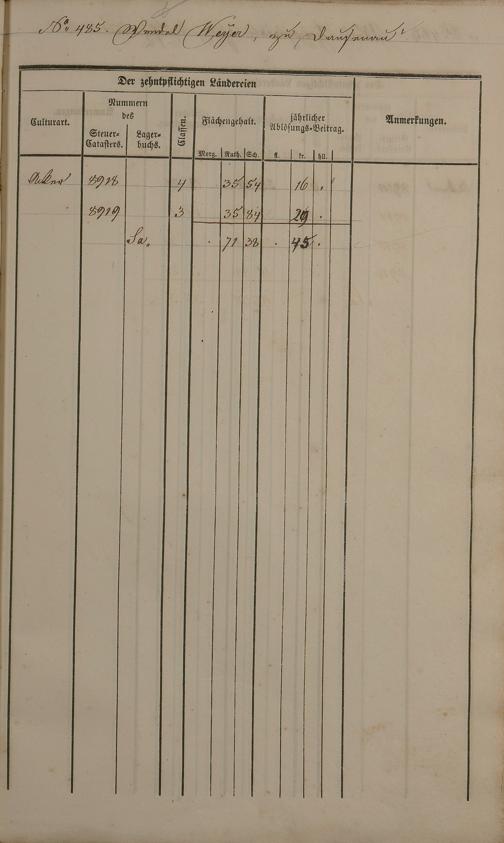 No 485. Wendel Weyer, zu Dausenau
Der zehntpflichtigen Ländereien
Culturart.
Nummern des
Steuer-Catasters.
Lager-buchs.
Classen.
Flächengehalt.
Morg. Ruth. Sch.
jährlicher Ablösungs-Beitrag.
fl. kr. hll.
Anmerkungen.
Acker 8918 4 35 54 16 .
8919 3 35 84 29 .
Sa. . 71 38 . 45 .